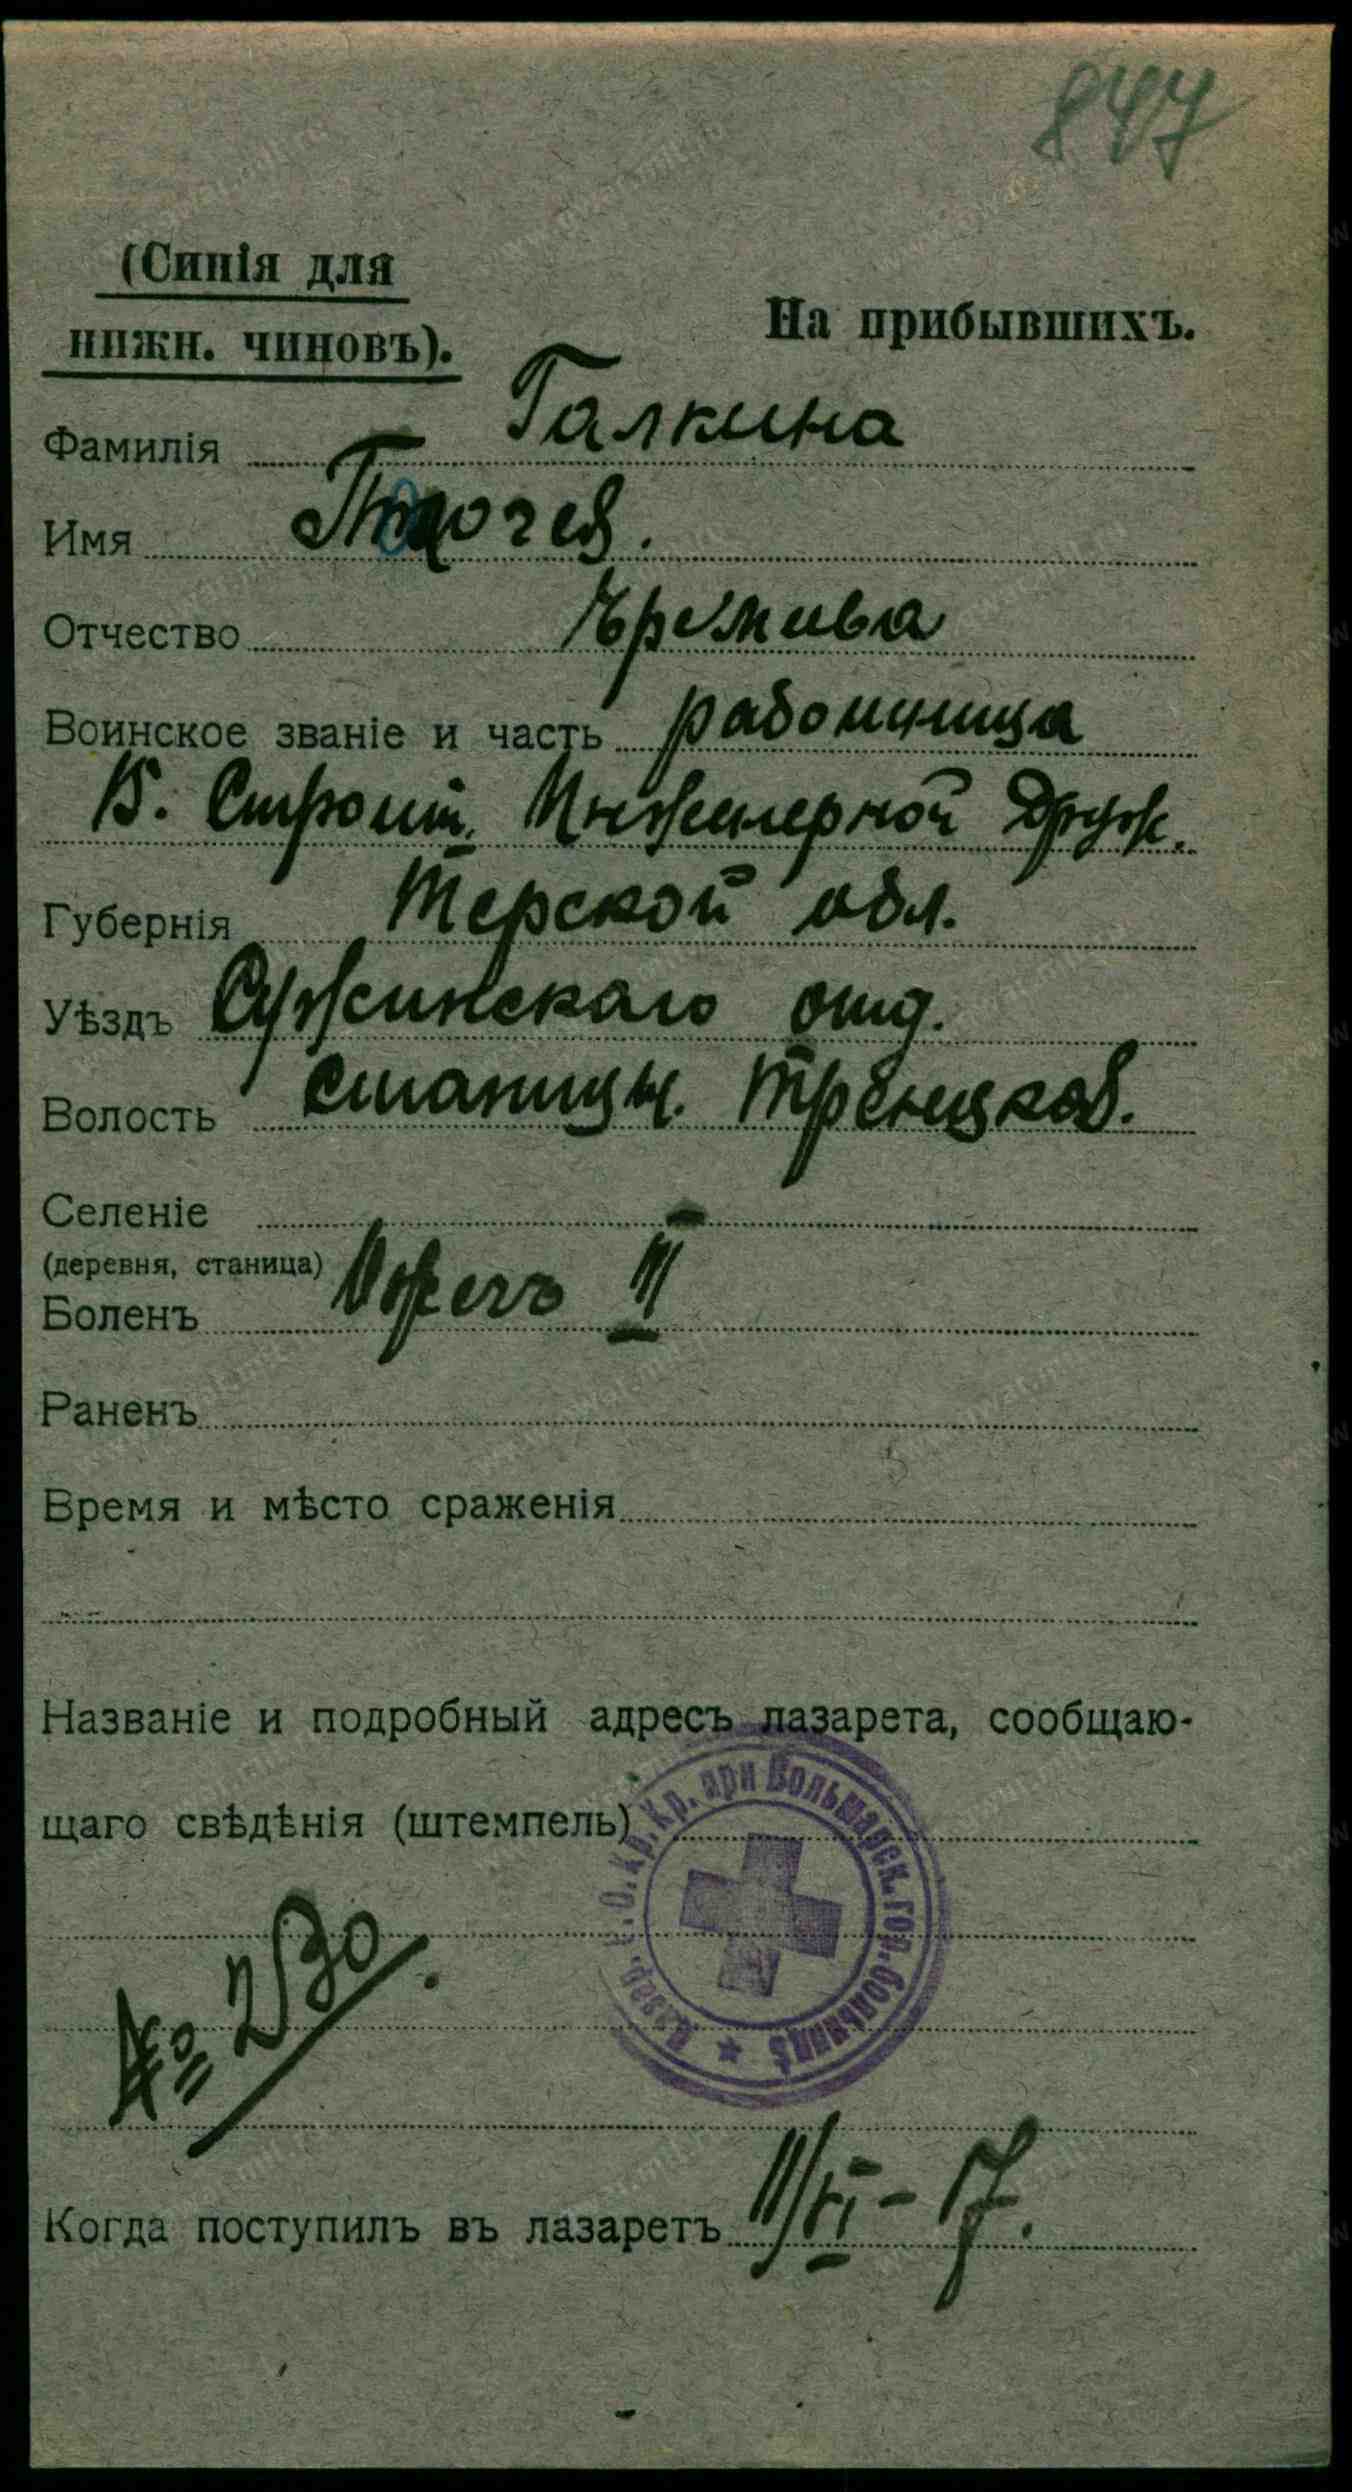 847
(Синія для
нижн. чиновъ).
На прибывшихъ.
Фамилія Галкина
Имя
Отчество
Воинское званіе и часть работница
15. Строит. Инженерной Друж.
Губернія Терской обл.
Уѣздъ Сунжинскаго отд.
Волость станицы
Селеніе
(деревня, станица)
Боленъ Ожогъ III
Раненъ
Время и мѣсто сраженія
Названіе и подробный адресъ лазарета, сообщаю-
щаго свѣдѣнія (штемпель)
Лазар. Р. О. Кр. Кр. при Вольмарск. гор. больницѣ
№ 230.
Когда поступилъ въ лазаретъ 11/VI - 17.